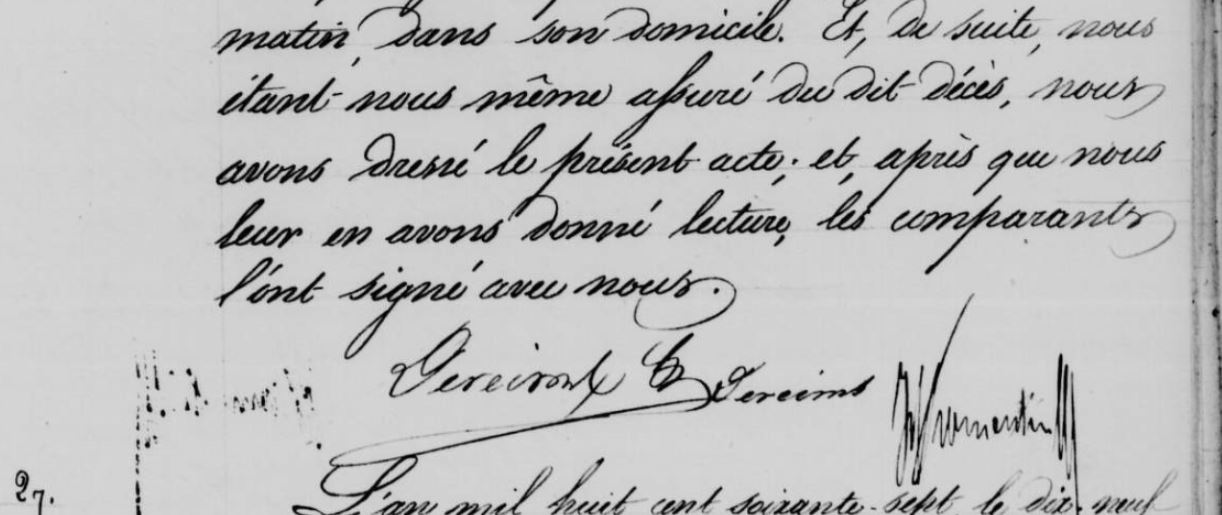 matin, dans son domicile. Et, de suite, nous
étant nous même assuré du dit décès, nous
avons dressé le présent acte; et, après que nous
leur en avons donné lecture, les comparants
l'ont signé avec nous.
27.
L'an mil huit cent soixante-sept, le dix-neuf